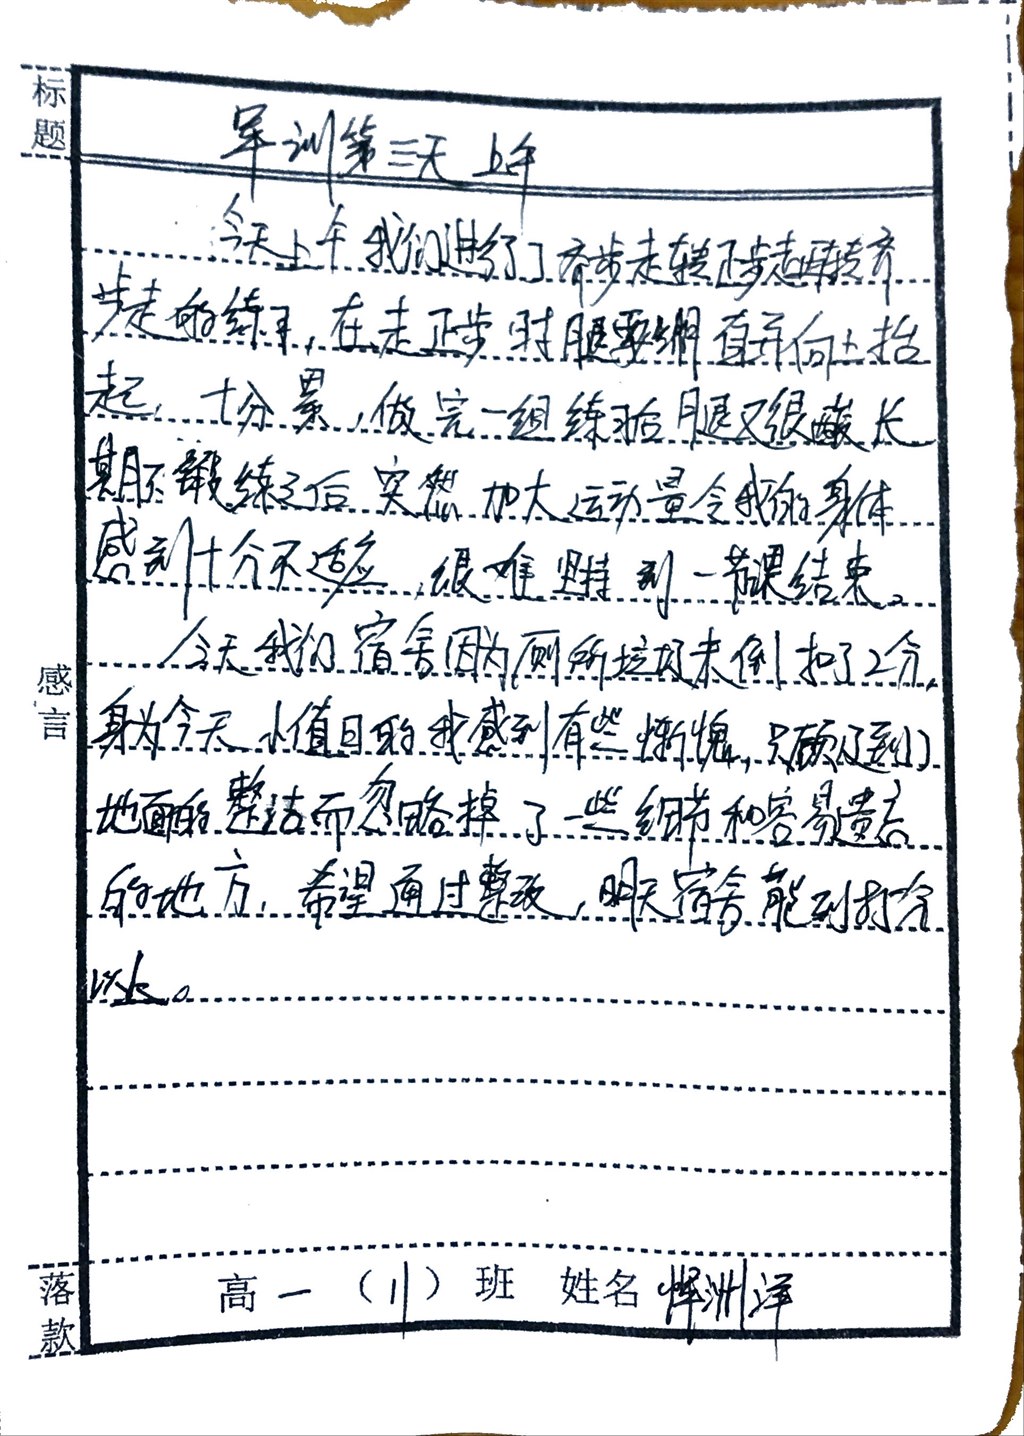 标题
军训第三天 上午
今天上午我们进行了齐步走转正步走再转齐
步走的练习，在走正步时腿要绷直并向上抬
起，十分累，做完一组练习后腿又很酸，长
期不锻练之后突然加大运动量令我的身体
感到十分不适应，很难坚持到一节课结束。
今天我们宿舍因为厕所垃圾未倒扣了2分，
感言
身为今天小值日的我感到有些惭愧，只顾及到了
地面的整洁而忽略掉了一些细节和容易遗忘
的地方，希望通过整改，明天宿舍能到打分
以上。
落款
高一（11）班 姓名 恽洲洋